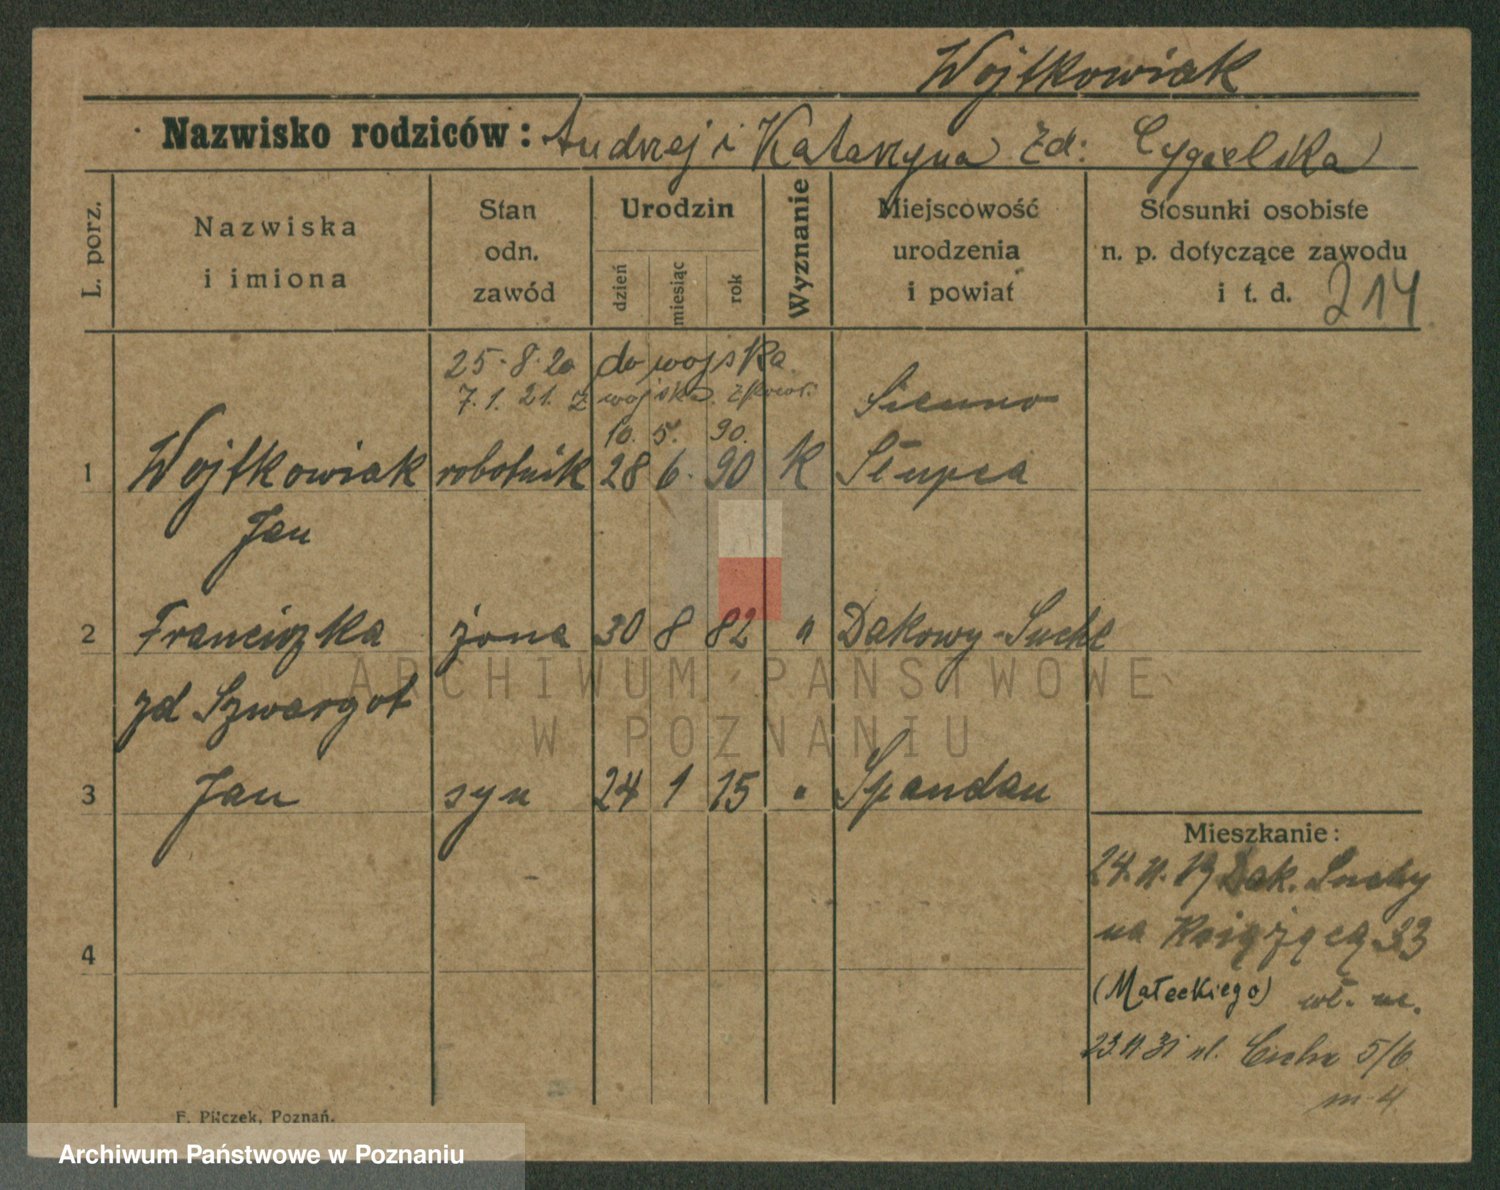 Wojtkowiak
Nazwisko rodziców: Andrzej i Katarzyna zd: Cygielska
L. porz.
Nazwiska
i imiona
Stan
odn.
zawód
Urodzin
dzień
miesiąc
rok
Wyznanie
Miejscowość
urodzenia
i powiat
Stosunki osobiste
n. p. dotyczące zawodu
i t. d. 214
25.8.20 do wojska.
7.1.21. z wojska
10. 5. 90.
1 Wojtkowiak robotnik 28 6. 90 K Słupca
Jan
2 Franciszka żona 30 8 82 " Dakowy-Suche
zd Szwargot
3 Jan syn 24 1 15 " Spandau
4
Mieszkanie:
24.11.19 Dak. Suchy
na Książęcą 33
(Małeckiego)
23.11.31 ul. Cicha 5/6
m 4
F. Pilczek, Poznań.
ARCHIWUM PAŃSTWOWE
W POZNANIU
Archiwum Państwowe w Poznaniu